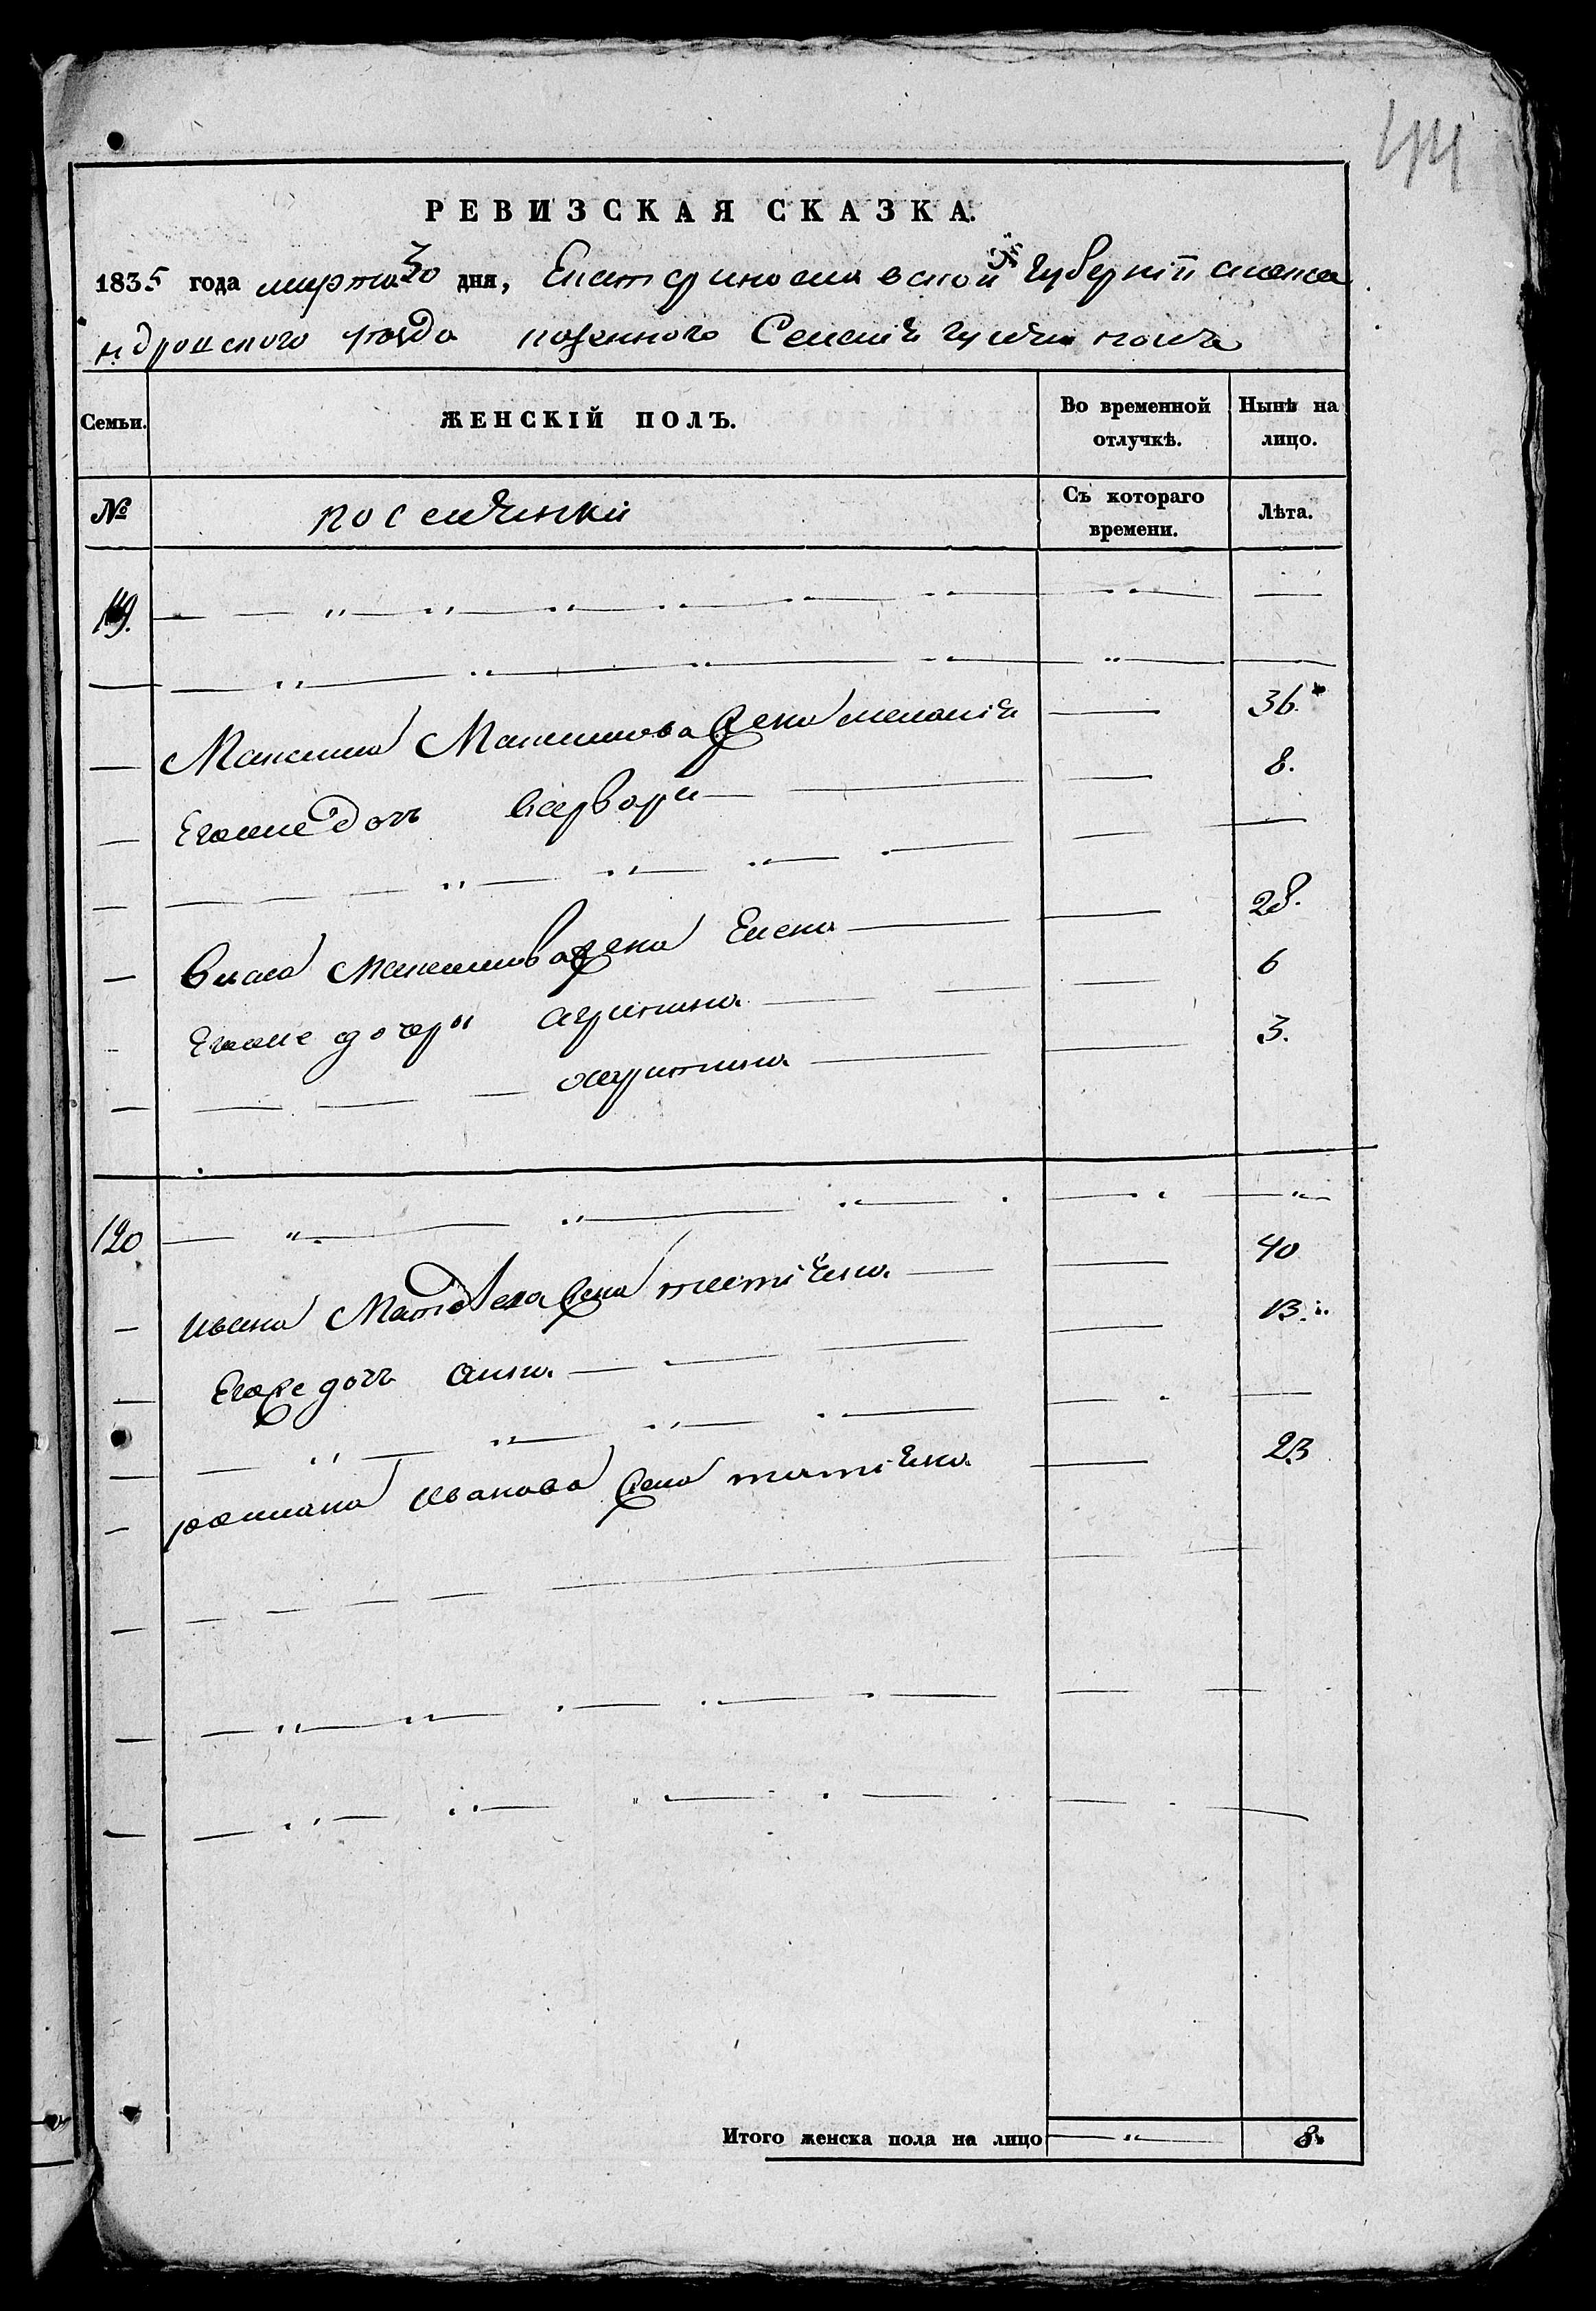 144
РЕВИЗСКАЯ СКАЗКА.
1835 года марта 30 дня, Екатеринославской Губерніи алекса
ндровского уезда казенного Селенія
Семьи. ЖЕНСКІЙ ПОЛЪ. Во временной отлучкѣ. Нынѣ на лицо.
№ поселянки Съ котораго времени. Лѣта.
119.
Максима Максимова жена меланія 36.
Егоже дочь варвара 8.
власа Максимова жена Елена 28.
Егоже дочери агрипина 6
агрипина 3.
120
ивана Матвеева жена татіяна 40
Егоже дочь анна 13.
романа иванова жена татіяна 23
Итого женска пола на лицо 8.